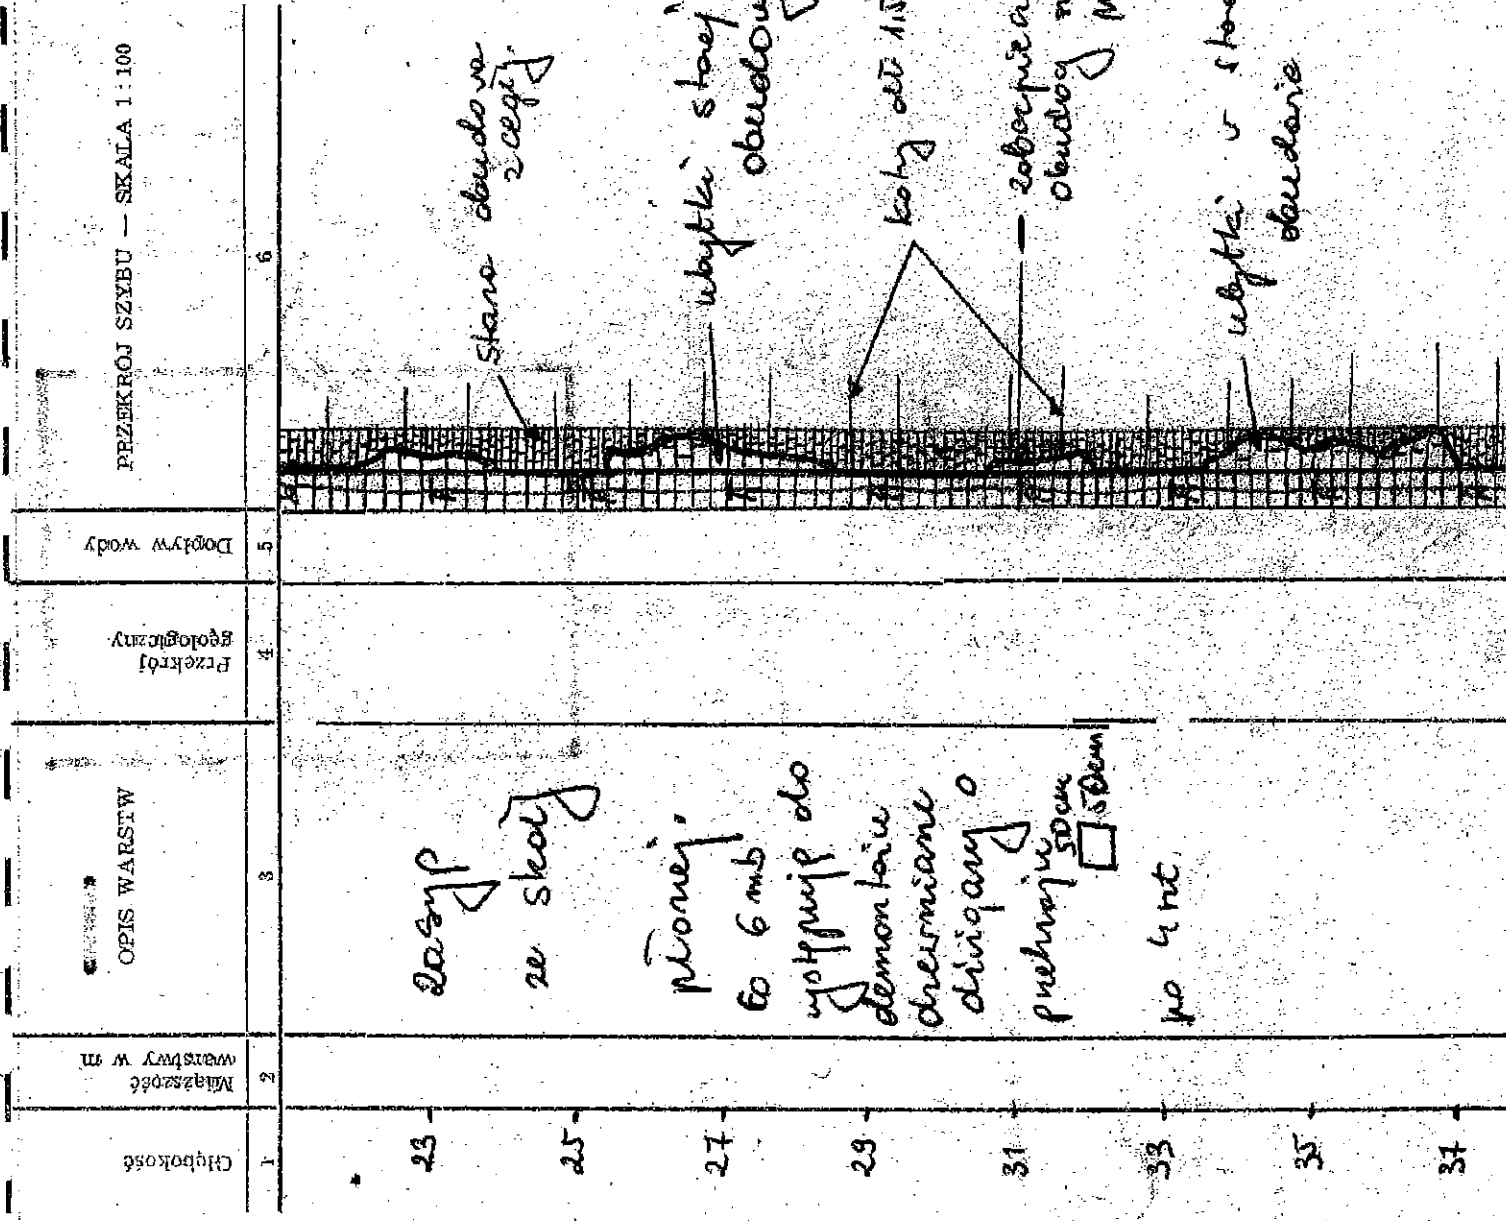 Głębokość
Miąższość
warstwy w m
OPIS WARSTW
Przekrój
geologiczny
Dopływ wody
PRZEKRÓJ SZYBU — SKALA 1:100
1
2
3
4
5
6
23
25
27
29
31
33
35
37
zasyp
ze skały
płonej.
Co 6 mb
występują do
demontażu
drewniane
dźwigary o
przekroju
50cm
50cm
po 4 szt.
Stara obudowa
z cegły.
ubytki starej
obudowy
kotwy
obudowy
ubytki w
obudowie